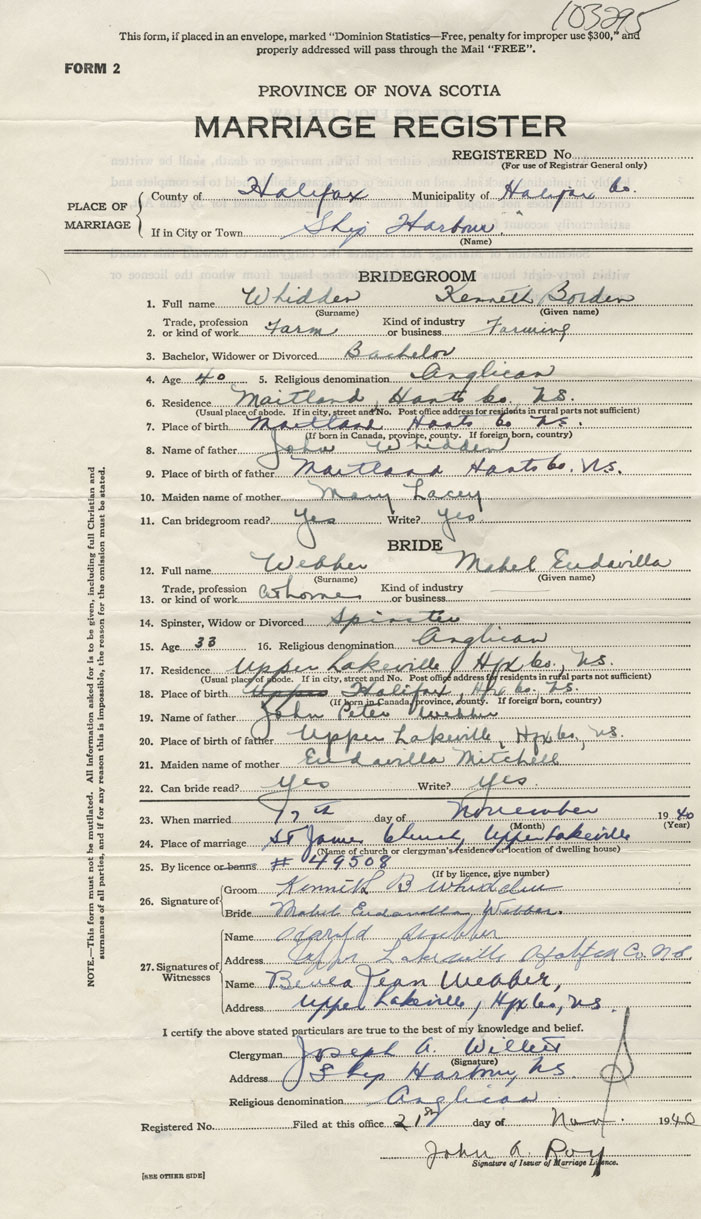 103295
This form, if placed in an envelope, marked "Dominion Statistics—Free, penalty for improper use $300," and
properly addressed will pass through the Mail "FREE".
FORM 2
PROVINCE OF NOVA SCOTIA
MARRIAGE REGISTER
REGISTERED No.
(For use of Registrar General only)
PLACE OF MARRIAGE
County of Halifax Municipality of Halifax Co.
If in City or Town Ship Harbour
(Name)
BRIDEGROOM
1. Full name Whidden Kenneth Borden
(Surname) (Given name)
2. Trade, profession or kind of work Farm Kind of industry or business Farming
3. Bachelor, Widower or Divorced Bachelor
4. Age 40 5. Religious denomination Anglican
6. Residence Maitland, Hants Co. N.S.
(Usual place of abode. If in city, street and No. Post office address for residents in rural parts not sufficient)
7. Place of birth Maitland Hants Co N.S.
(If born in Canada, province, county. If foreign born, country)
8. Name of father John Whidden
9. Place of birth of father Maitland Hants Co. N.S.
10. Maiden name of mother Mary Lacey
11. Can bridegroom read? Yes Write? Yes.
BRIDE
12. Full name Webber Mabel Eudavilla
(Surname) (Given name)
13. Trade, profession or kind of work At home Kind of industry or business
14. Spinster, Widow or Divorced Spinster
15. Age 33 16. Religious denomination Anglican
17. Residence Upper Lakeville, Hfx Co., N.S.
(Usual place of abode. If in city, street and No. Post office address for residents in rural parts not sufficient)
18. Place of birth Upper Halifax, Hfx Co. N.S.
(If born in Canada, province, county. If foreign born, country)
19. Name of father John Peter Webber
20. Place of birth of father Upper Lakeville, Hfx Co., N.S.
21. Maiden name of mother Eudavilla Mitchell
22. Can bride read? Yes Write? Yes.
23. When married 17th day of November 1940
(Month) (Year)
24. Place of marriage St James Church, Upper Lakeville
(Name of church or clergyman's residence or location of dwelling house)
25. By licence or banns # 49508
(If by licence, give number)
26. Signature of Groom Kenneth B Whidden
Bride Mabel Eudavilla Webber.
27. Signatures of Witnesses
Name Harold Webber
Address Upper Lakeville Halifax Co. N.S.
Name Jean Webber,
Address Upper Lakeville, Hfx Co, N.S.
I certify the above stated particulars are true to the best of my knowledge and belief.
Clergyman Joseph A. Willett
(Signature)
Address Ship Harbour, N.S.
Religious denomination Anglican
Registered No. Filed at this office 21st day of Nov. 1940
John A. Roy
Signature of Issuer of Marriage Licence.
[SEE OTHER SIDE]
NOTE.—This form must not be mutilated. All information asked for is to be given, including full Christian and
surnames of all parties, and if for any reason this is impossible, the reason for the omission must be stated.